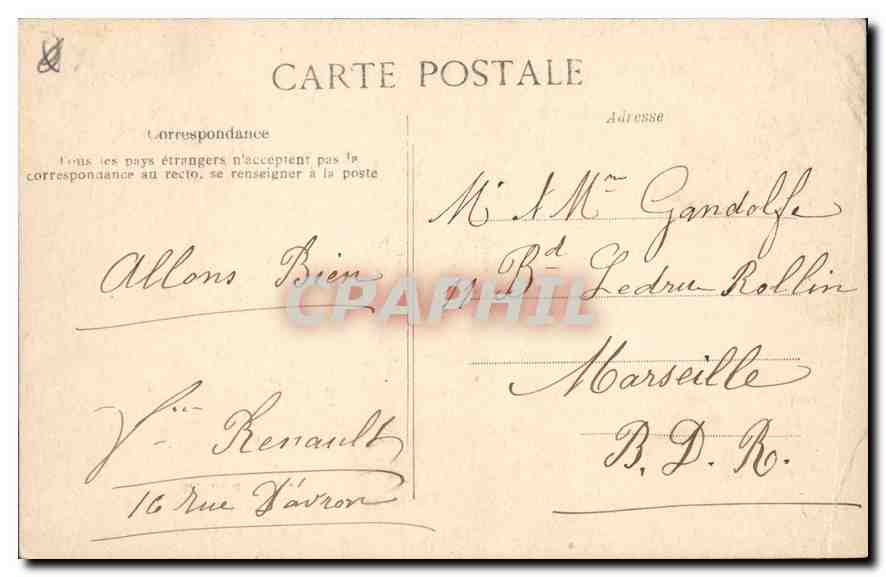 CARTE POSTALE
Correspondance
Tous les pays étrangers n'acceptent pas la
correspondance au recto, se renseigner à la poste
Adresse
Allons Bien
Renault
16 rue D'avron
Mr & Mme Gandolfe
11 Bd Ledru Rollin
Marseille
B. D. R.
CPAPHIL